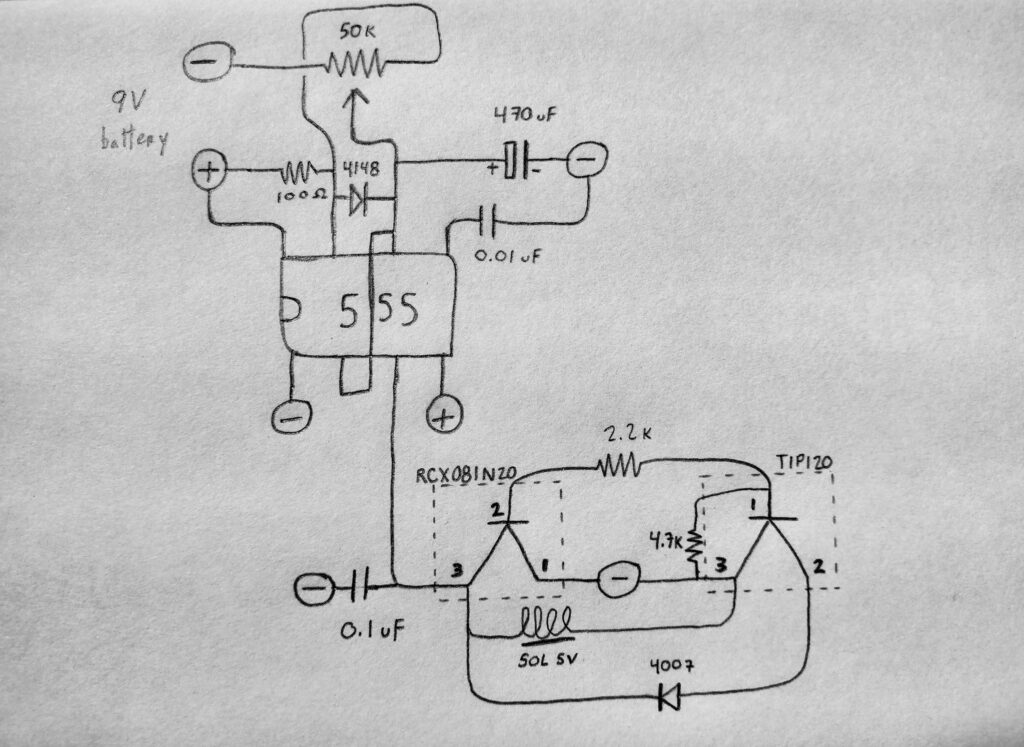 50K
9V
battery
470uF
4148
100Ω
0.01uF
555
2.2K
RCX081N20
TIP120
2
1
4.7K
3
1
3
2
0.1uF
SOL 5V
4007